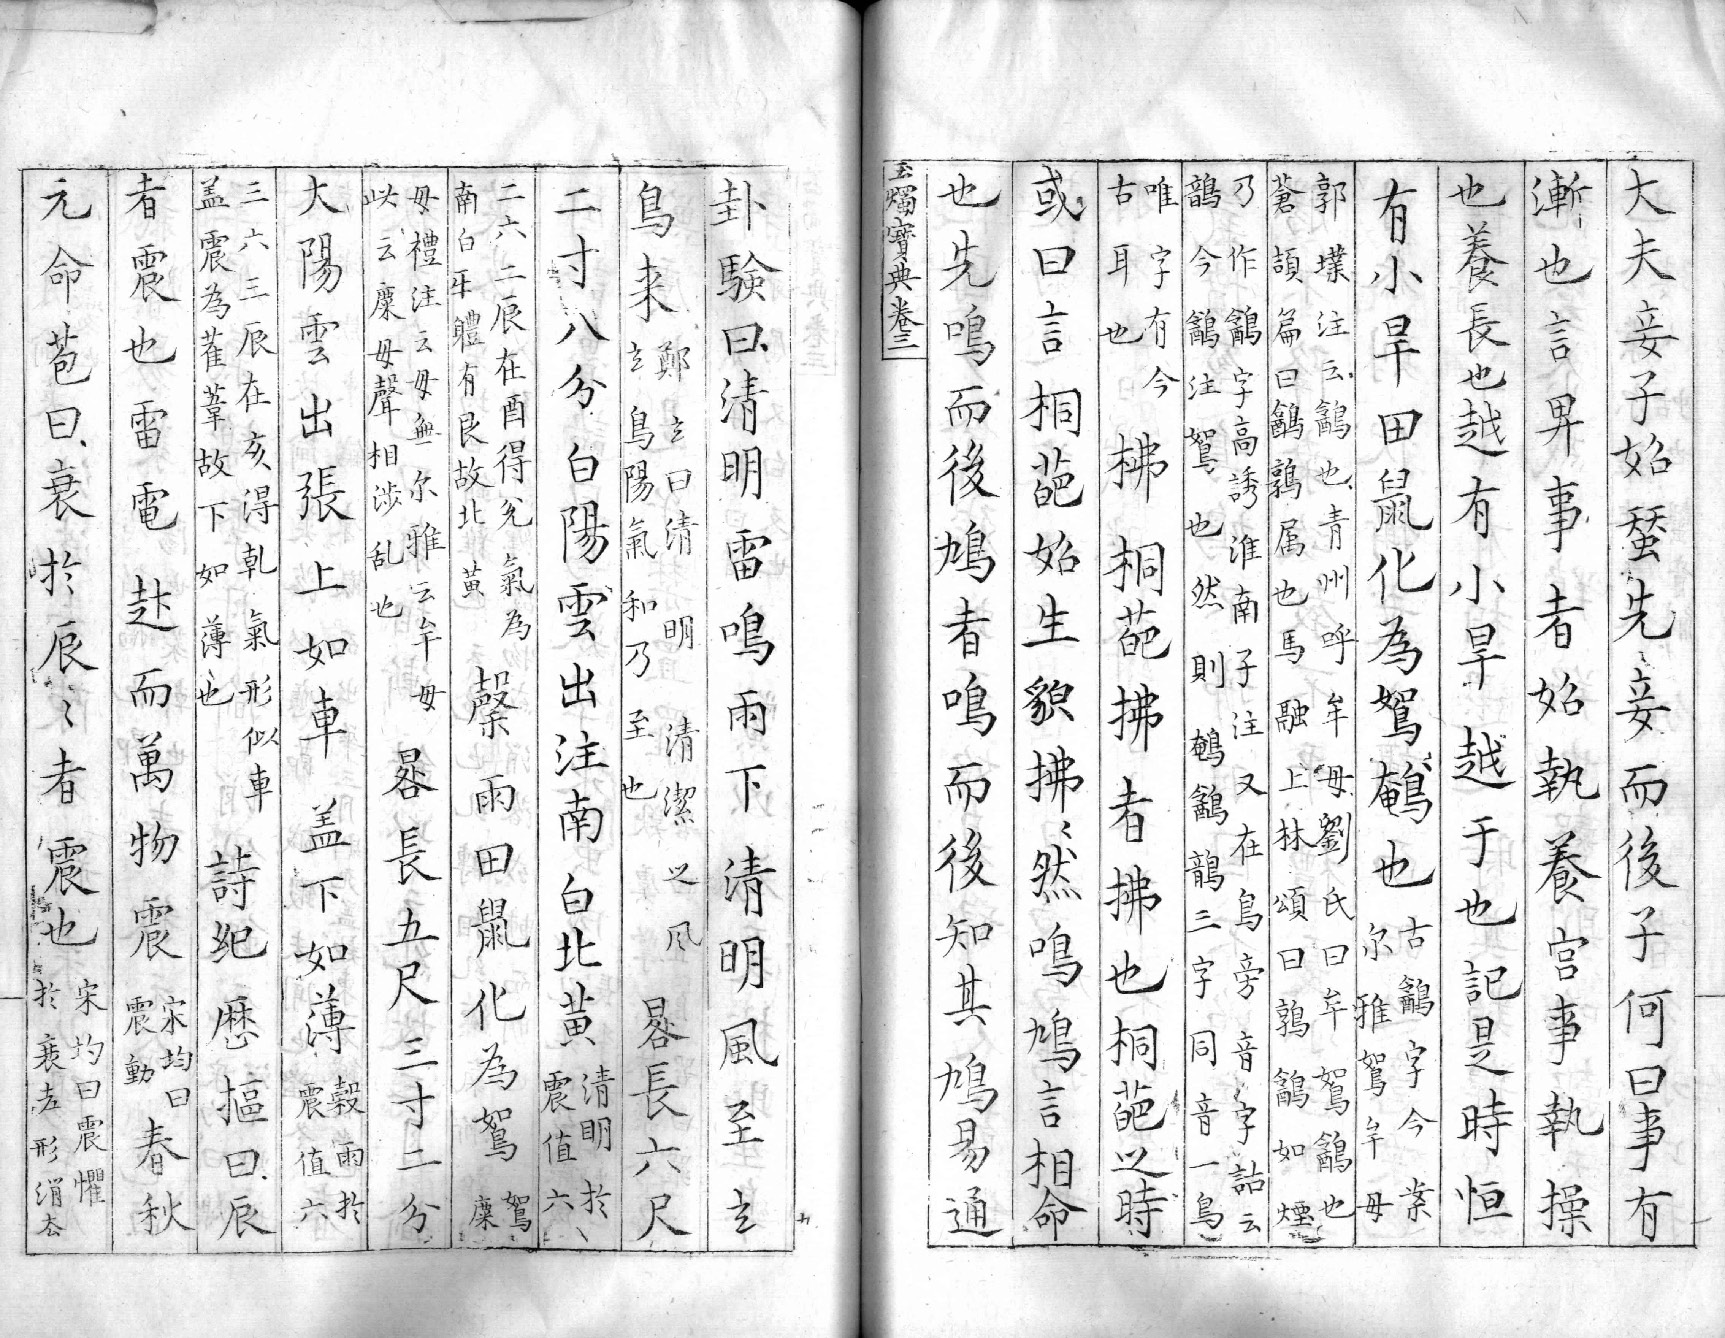 大夫妾子始蚕先妾而後子何曰事有
漸也言昇事者始執養宫事執操
也養長也越有小旱越于也記是時恒
有小旱田鼠化為鴽鵪也
古鶕字今案
尔雅鴽牟毋
郭墣注云鶕也青州呼牟毋劉氏曰牟鴽鶕也
蒼頡篇曰鶕鶉属也馬融上林頌曰鶉鶕如煙
乃作鶕字高誘淮南子注又在鳥旁音字詁云
鶕今鶕注鴽也然則鵪鶕三字同音一鳥
唯字有今
古耳也
柫桐葩拂者拂也桐葩之時
或曰言桐葩始生貌拂〻然鳴鳩言相命
也先鳴而後鳩者鳴而後知其鳩易通
玉燭寶典卷三
卦験曰清明雷鳴雨下清明風至玄
鳥来
鄭玄曰清明清潔之风
玄鳥陽氣和乃至也
晷長六尺
二寸八分白陽雲出注南白北黃
清明於
震值六
二六二辰在酉得兊氣為
南白牙軆有艮故北黄
糳雨田鼠化為鴽
鴽
麋
毋禮注云毋無尔雅云牟毋
此云麋毋聲相渉乱也
晷長五尺三寸二分
大陽雲出張上如車盖下如薄
穀雨於
震值六
三六三辰在亥得乾氣形似車
盖震為萑葦故下如薄也
詩紀厯摳曰辰
者震也雷電赴而萬物震
宋均曰
震動
春秋
元命苞曰衰於辰〻者震也
宋均曰震懼
於衰老形消去